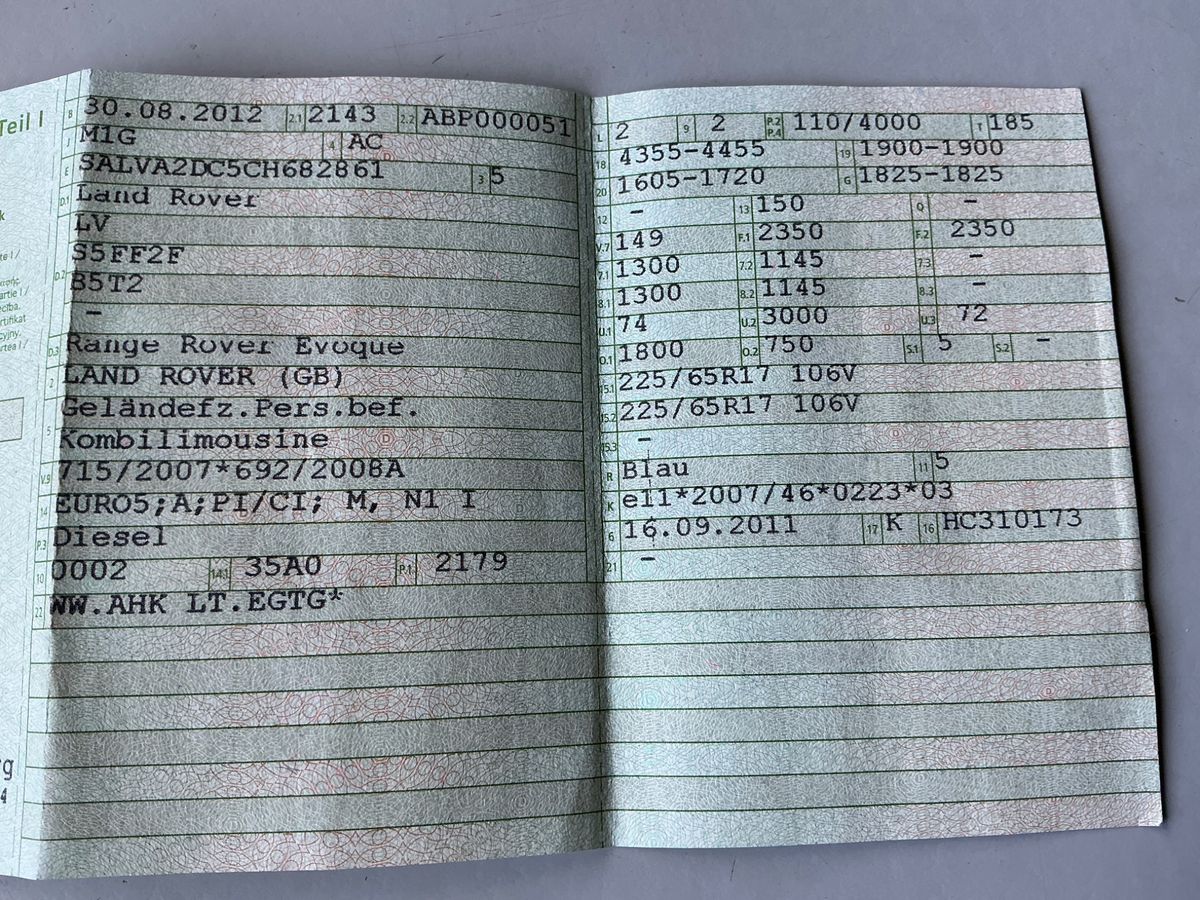 Teil I
B 30.08.2012 2.1 2143 2.2 ABP000051
J M1G 4 AC
E SALVA2DC5CH682861 3 5
D.1 Land Rover
LV
D.2 S5FF2F
B5T2
-
D.3 Range Rover Evoque
2 LAND ROVER (GB)
Geländefz.Pers.bef.
5 Kombilimousine
V.9 715/2007*692/2008A
14 EURO5;A;PI/CI; M, N1 I
P.3 Diesel
10 0002 14.1 35A0 P.1 2179
22 WW.AHK LT.EGTG*
L 2 9 2 P.2 P.4 110/4000 T 185
18 4355-4455 19 1900-1900
20 1605-1720 G 1825-1825
12 - 13 150 Q -
V.7 149 F.1 2350 F.2 2350
7.1 1300 7.2 1145 7.3 -
8.1 1300 8.2 1145 8.3 -
U.1 74 U.2 3000 U.3 72
O.1 1800 O.2 750 S.1 5 S.2 -
15.1 225/65R17 106V
15.2 225/65R17 106V
15.3 -
R Blau 11 5
K e11*2007/46*0223*03
6 16.09.2011 17 K 16 HC310173
21 -